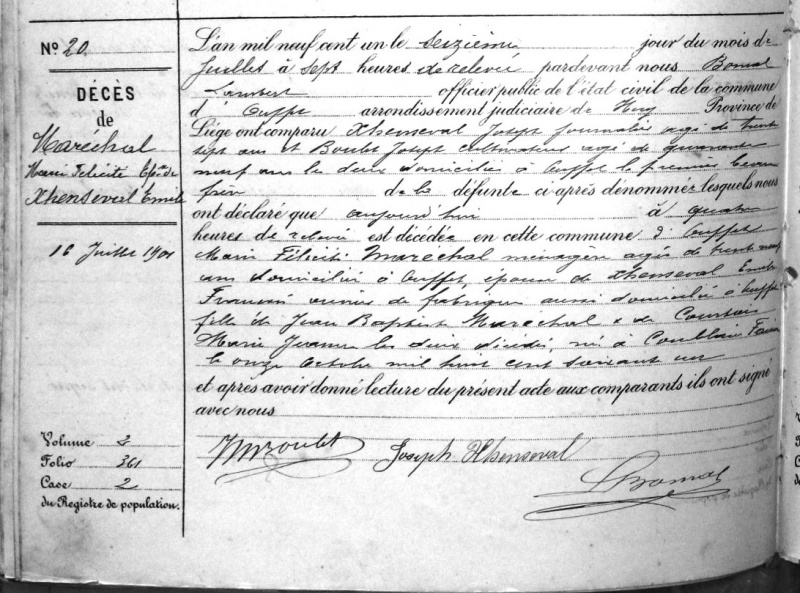 No 20
DÉCÈS
de
Maréchal
Marie Félicité Epse de
Xhenseval Emile
16 Juillet 1901
Volume 3
Folio 361
Case 2
du Registre de population.
L'an mil neuf cent un le seizième jour du mois de
Juillet à sept heures de relevée pardevant nous Bomal
Lambert officier public de l'état civil de la commune
d'Ouffet arrondissement judiciaire de Huy Province de
Liége ont comparu Xhenseval Joseph Journalier agé de trente
sept ans et Boulet Joseph cultivateur agé de quarante
neuf ans les deux domiciliés à Ouffet le premier beau
frère de la défunte ci après dénommée lesquels nous
ont déclaré que aujourd'hui à quatre
heures de relevée est décédée en cette commune d'Ouffet
Marie Félicité Maréchal ménagère agée de trente neuf
ans domiciliée à Ouffet, épouse de Xhenseval Emile
François ouvrier de fabrique aussi domicilié à Ouffet
fille de Jean Baptiste Maréchal & de Courtois
Marie Jeanne les deux décédés, née à Comblain Fairon
le onze Octobre mil huit cent soixante un
et après avoir donné lecture du présent acte aux comparants ils ont signé
avec nous
Boulet Joseph Xhenseval
LBomal